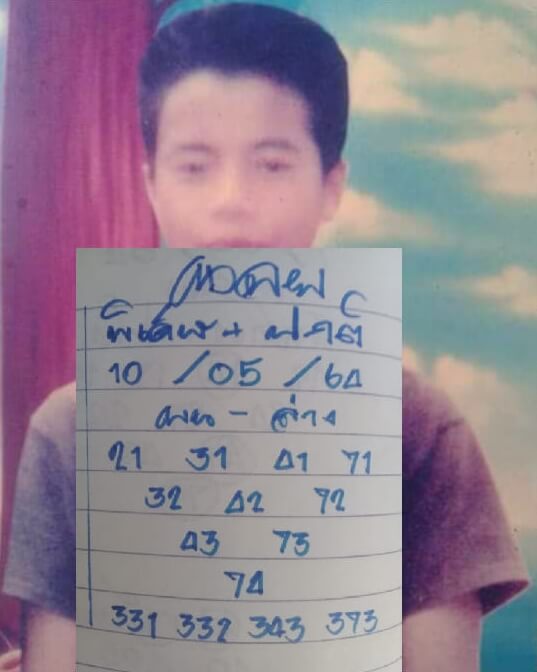 พิเศษ + ปกติ
10 / 05 / 64
บน - ล่าง
21 31 41 71
32 42 72
43 73
74
331 332 343 373